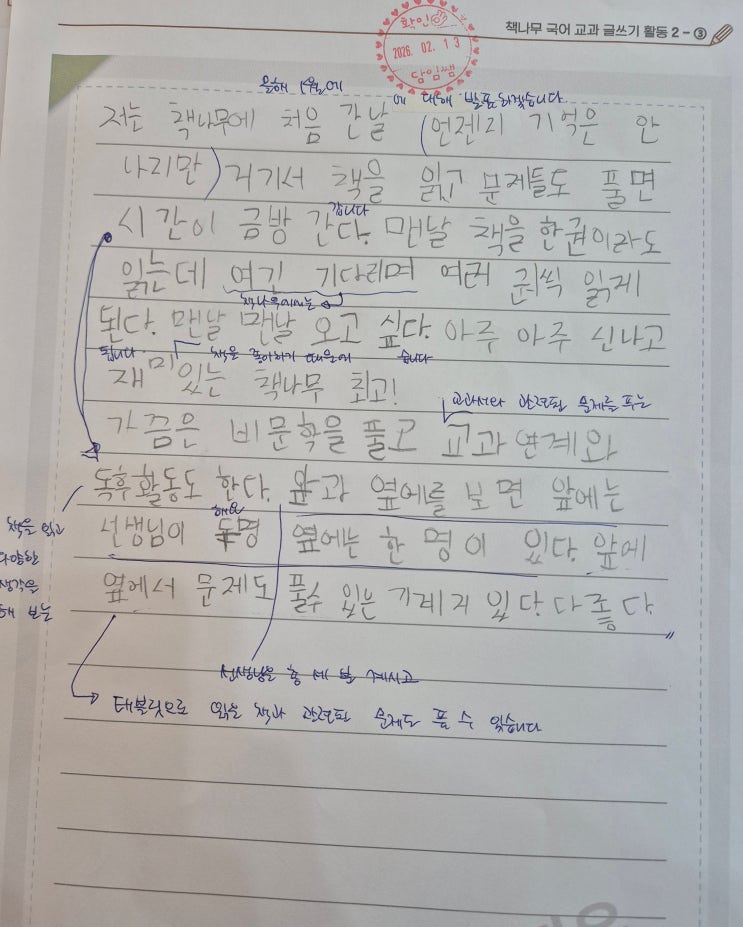 책나무 국어 교과 글쓰기 활동 2 - ③
확인
2026. 02. 13
담임쌤
올해 1월에
에 대해 발표하겠습니다.
저는 책나무에 처음 간날 (언젠지 기억은 안
나지만) 거기서 책을 읽고 문제들도 풀면
갑니다
시간이 금방 간다. 맨날 책을 한권이라도
읽는데 여긴 기다리며 여러 권씩 읽게
책나무에서는
된다. 맨날 맨날 오고 싶다. 아주 아주 신나고
됩니다. 책을 좋아하기 때문에 습니다
재미있는 책나무 최고!
교과서와 관련된 문제를 푸는
가끔은 비문학을 풀고 교과연계와
독후활동도 한다. 앞과 옆에를 보면 앞에는
책을 읽고
다양한
생각을
해 보는
해요
선생님이 두명 옆에는 한 명이 있다. 앞에
옆에서 문제도 풀수 있는 기계가 있다 다 좋다
선생님은 총 세 분 계시고
태블릿으로 읽은 책과 관련된 문제도 풀 수 있습니다